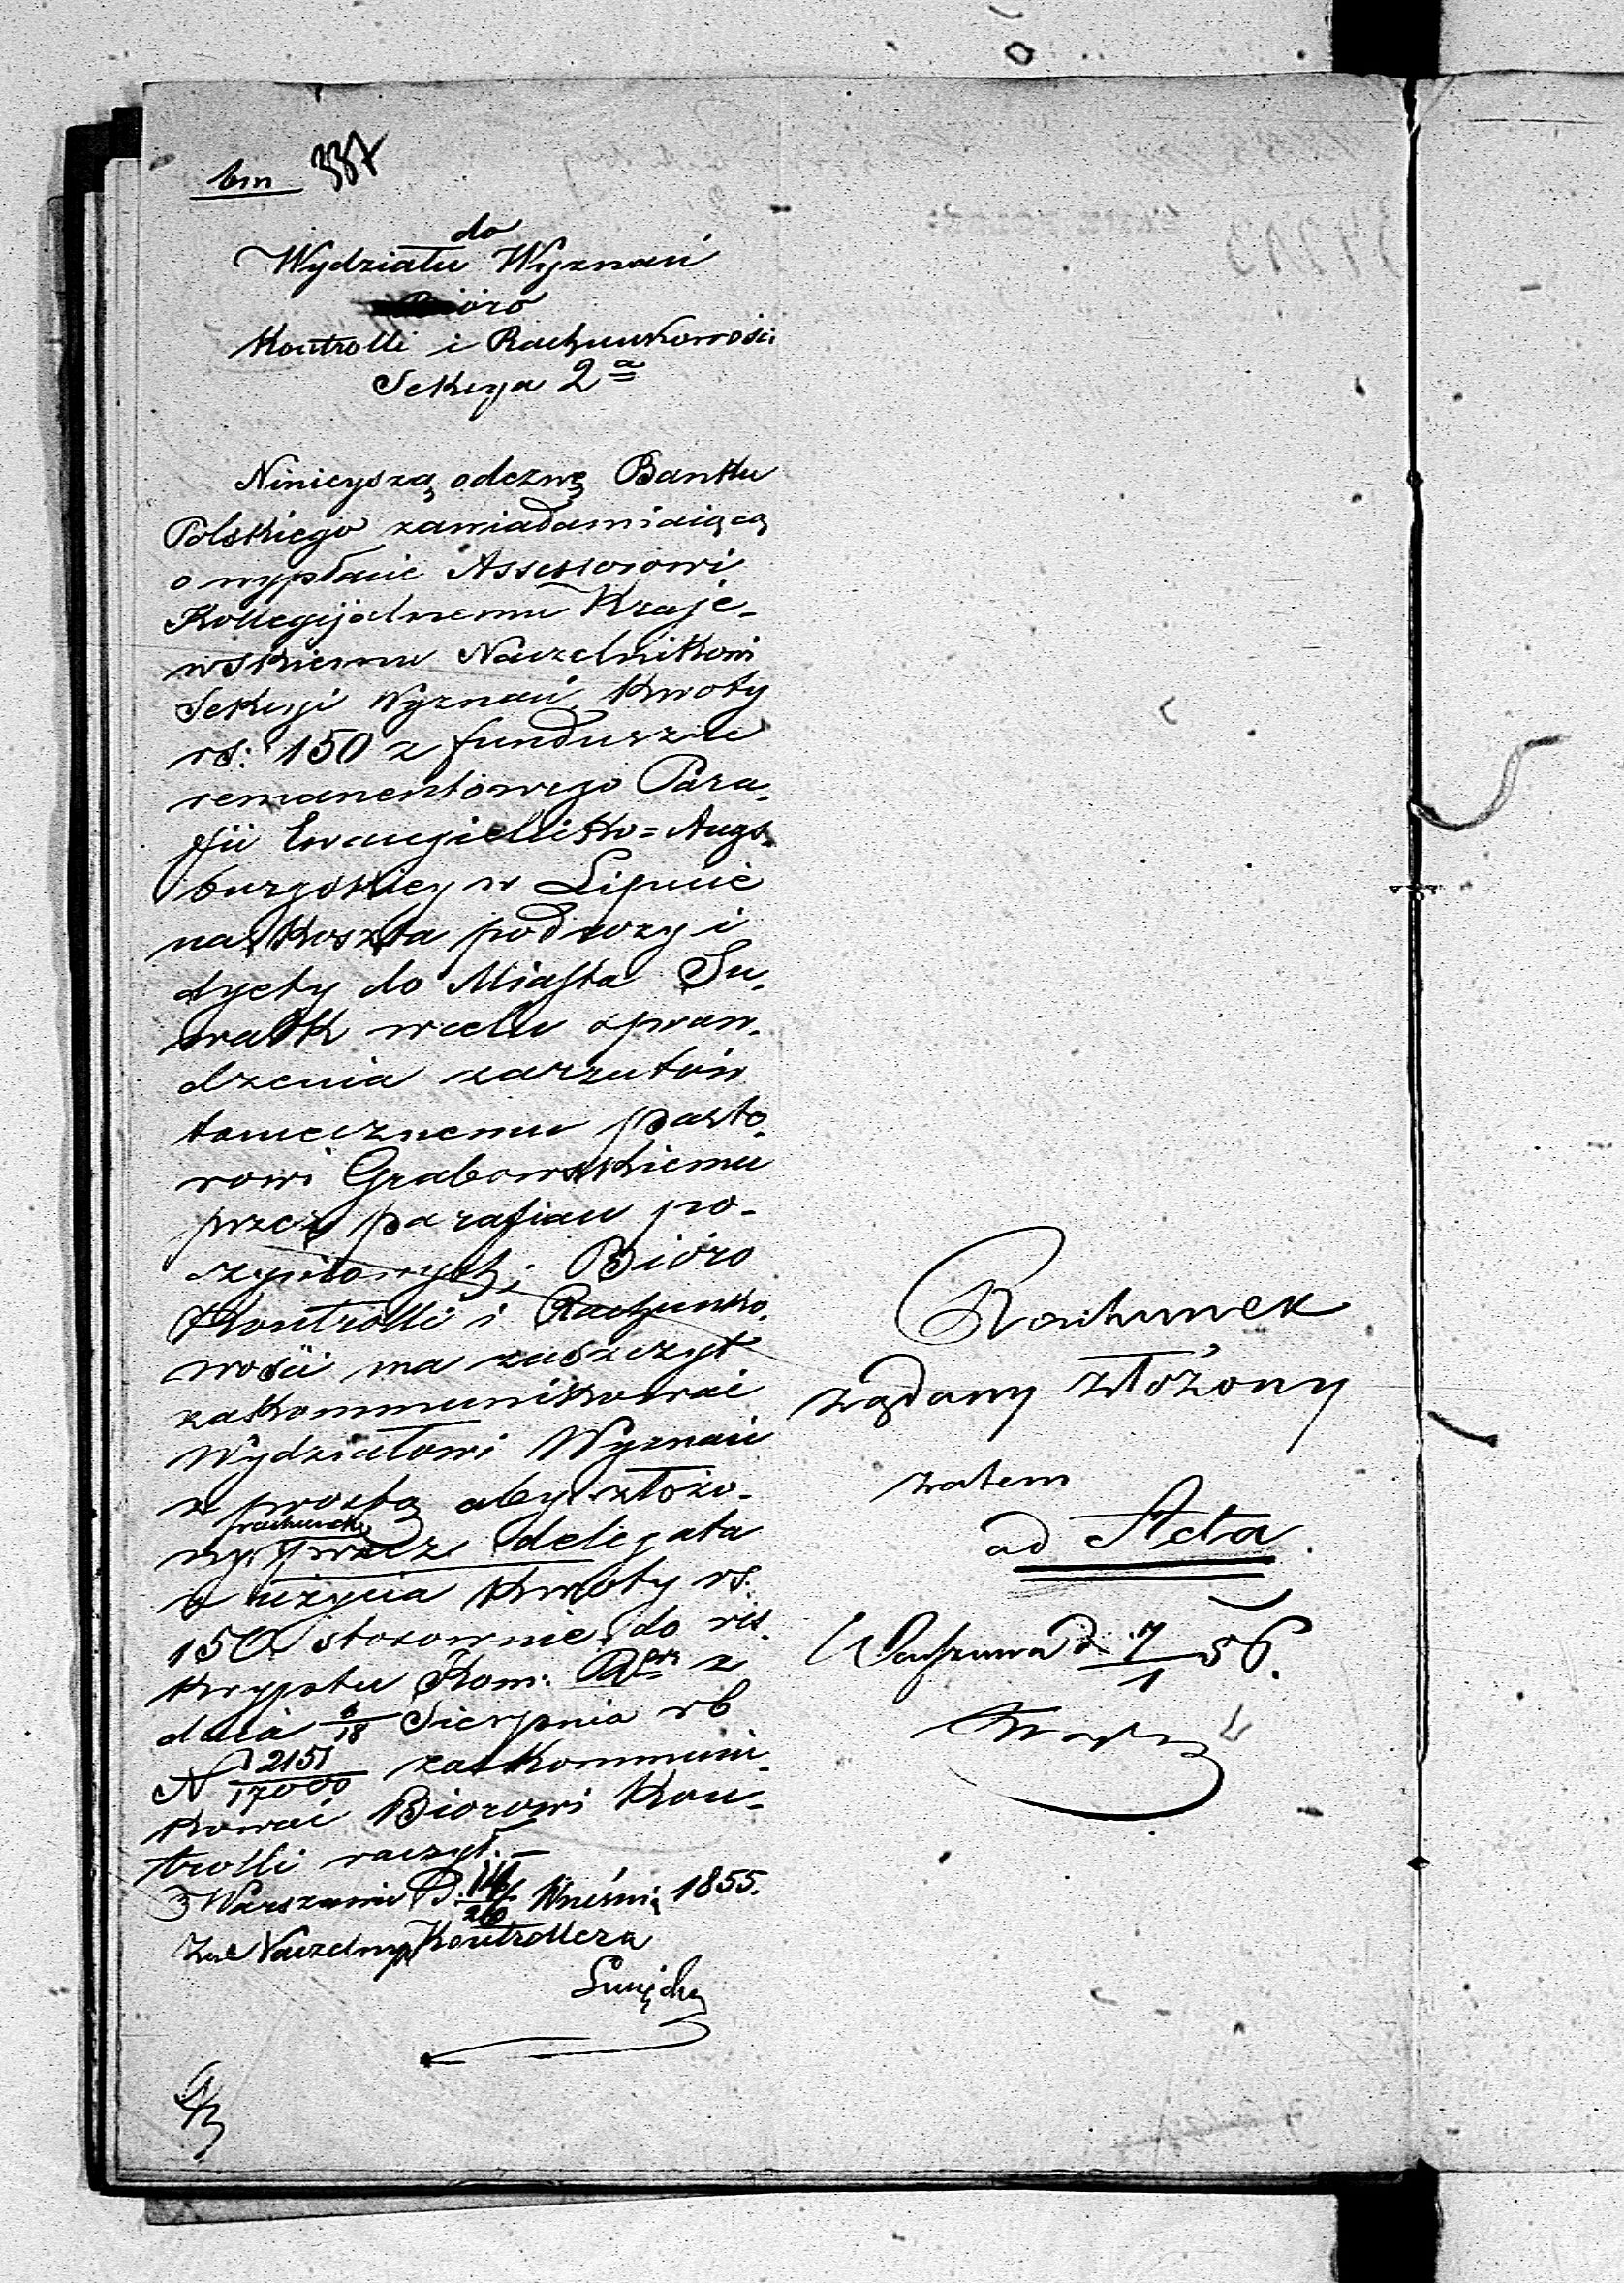 bm 337
do
Wydziału Wyznań
Bióro
Kontrolli i Rachunkowości
Sekcya 2a
Ninieyszą odezwę Banku
Polskiego zawiadamiaiącą
o wypłacie Assessorowi
Kollegijalnemu Kraje-
wskiemu Naczelnikowi
Sekcyi Wyznań, kwoty
rs: 150 z funduszu
remanentowego Para-
fii Ewangielicko=Augs-
burgskiey w Lipnie
na koszta podrozy i
dyety do Miasta Su-
wałk w celu spraw-
dzenia zarzutów
tamecznemu pasto-
rowi Grabowskiemu
przez parafian po-
czynionych; Bióro
Kontrolli i Rachunko-
wości ma zaszczyt
zakommunikować
Wydziałowi Wyznań
z prosbą aby złożo-
ny rachunek przez delegata
z użycia kwoty rs.
150 stosownie do res-
kryptu Kom: z
dnia 6/18 Sierpnia rb
N 2151/17000 zakommuni-
kować Biorowi Kon-
trolli raczył.-
w Warszawie D. 14/26 Wrześnią 1855.
Naczelnego Kontrollera
Rachunek
żądany złożony
zatem
ad Acta.
Warszawa d. 7/1 56.